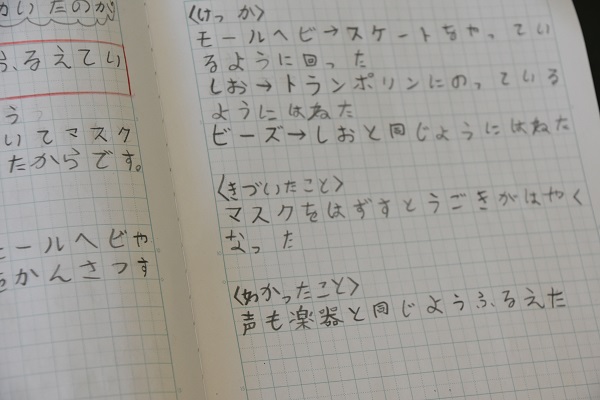 かいたのが
ふるえてい
う
いてマスク
たからです。
モールヘビや
をかんさつす
〈けっか〉
モールヘビ→スケートをやってい
るように回った
しお→トランポリンにのっている
ようにはねた
ビーズ→しおと同じようにはねた
〈きづいたこと〉
マスクをはずすとうごきがはやく
なった
〈わかったこと〉
声も楽器と同じようふるえた